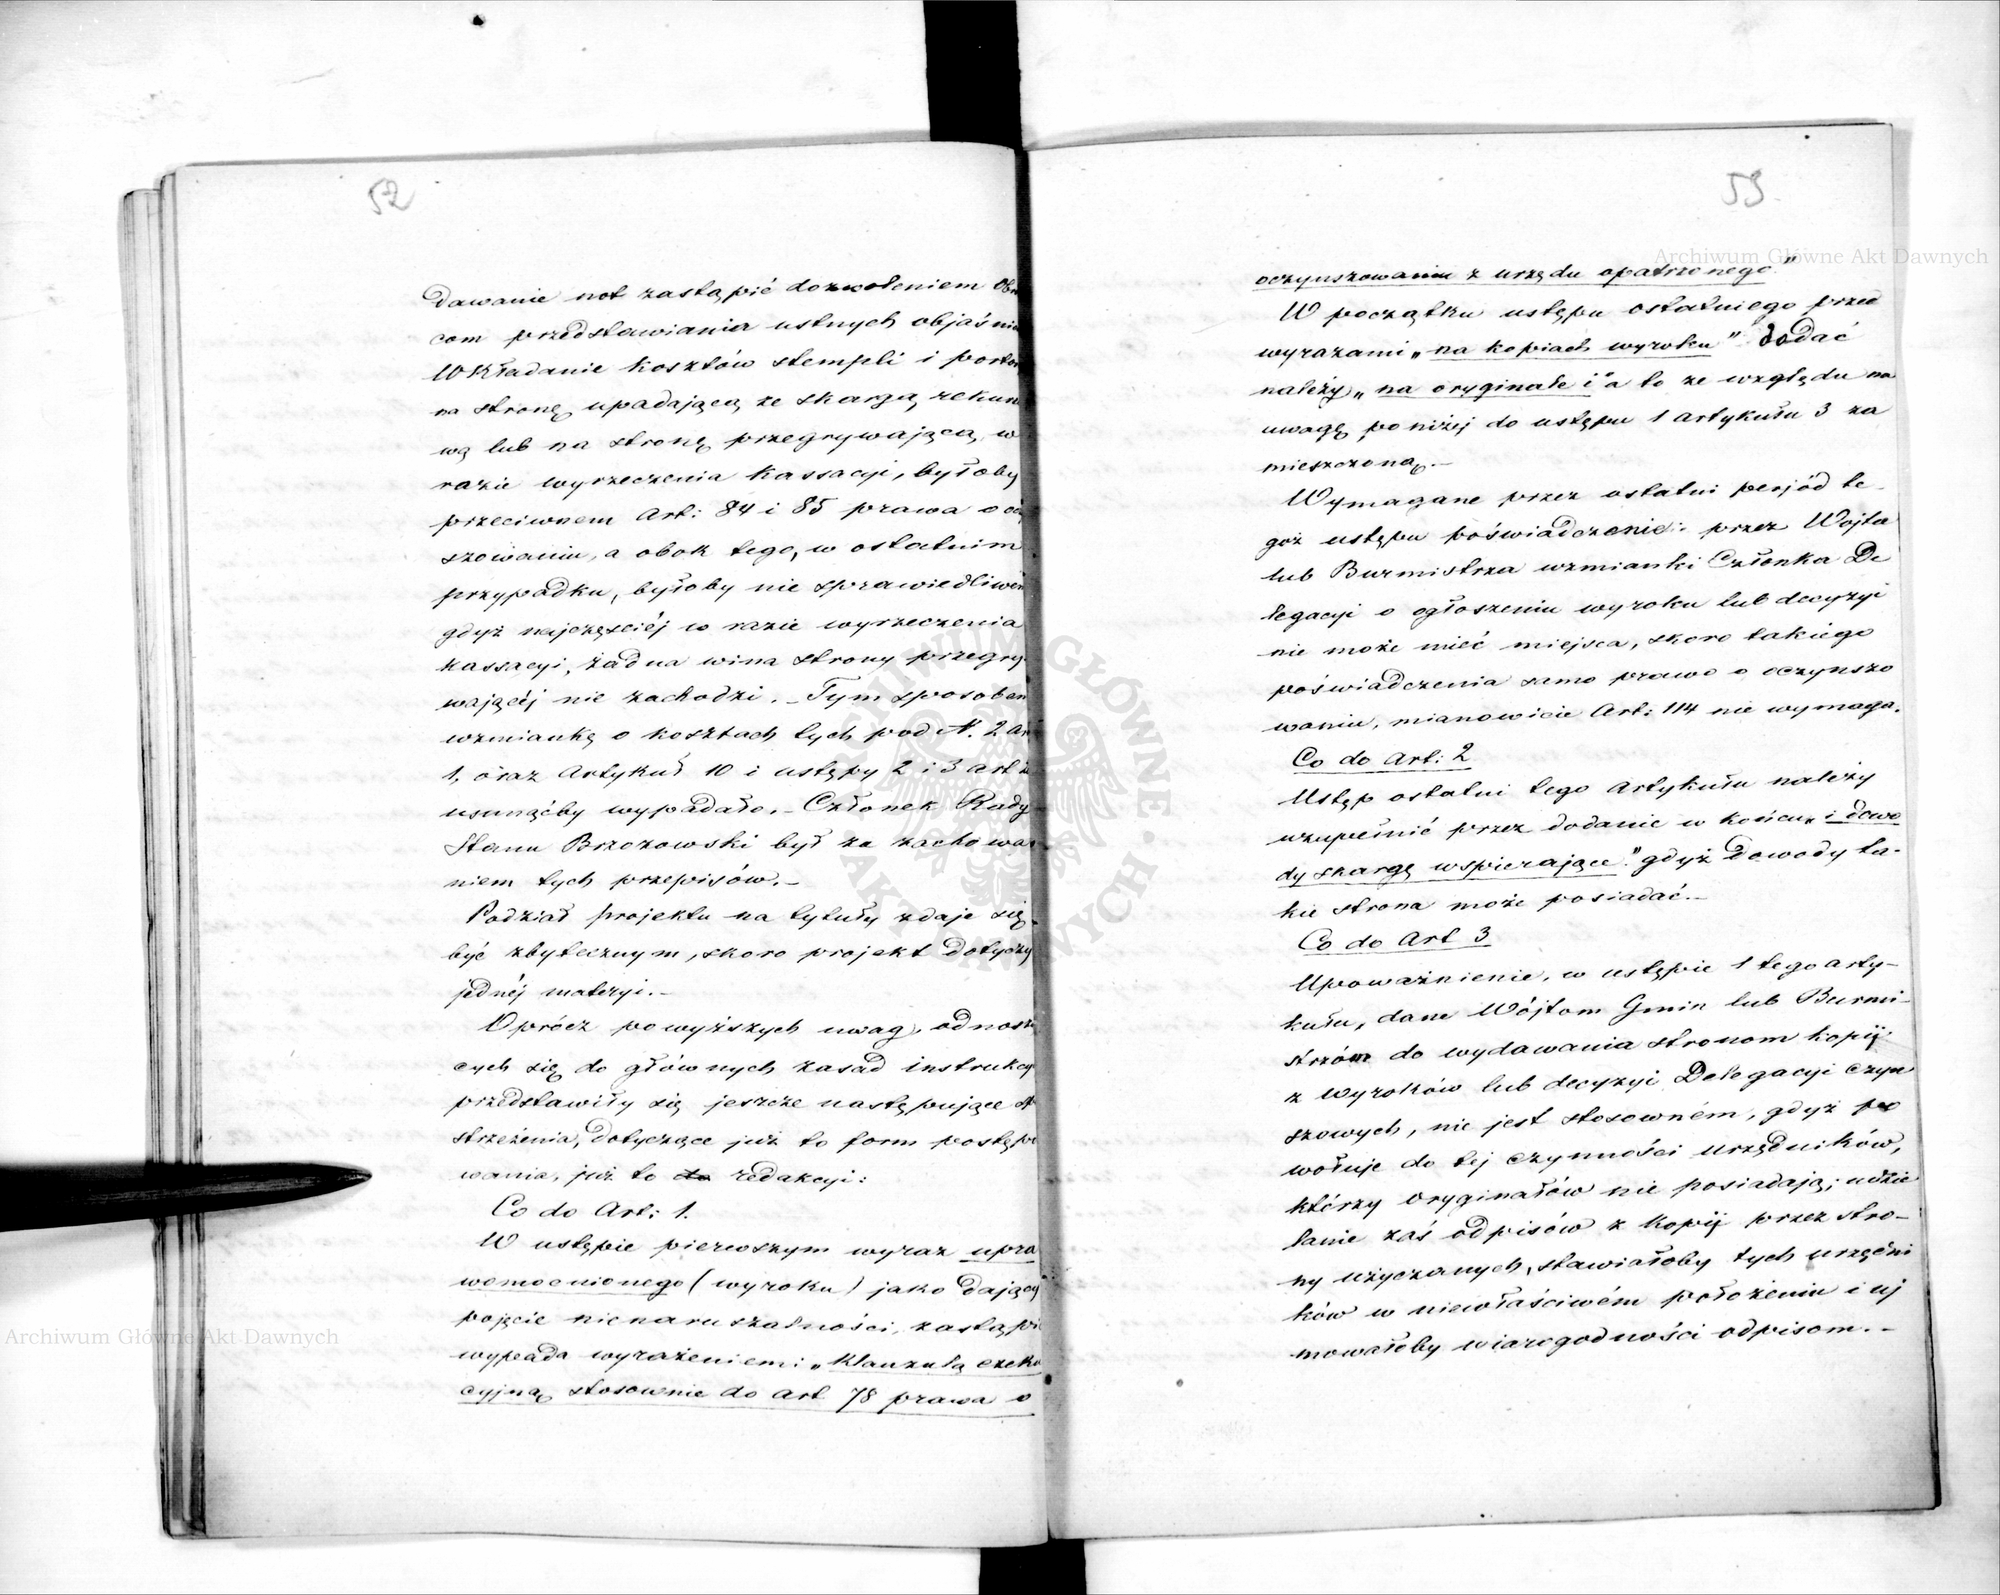 52
Dawanie not zastąpić dozwoleniem Obr
com przedstawiania ustnych objaśnie
Wkładanie kosztów stempli i porto
na stronę upadającą ze skargą rekur
wą lub na stronę przegrywającą, w
razie wyrzeczenia Kassacyi, byłoby
przeciwnem Art: 84 i 85 prawa o oczy
szowaniu, a obok tego, w ostatnim
przypadku, byłoby nie sprawiedliwem
gdyż najczęściéj w razie wyrzeczenia
kassacyi, żadna wina strony przegry-
wającéj nie zachodzi. - Tym sposobem
wzmiankę o kosztach tych pod N. 2 art
1, oraz Artykuł 10 i ustępy 2 i 3 art
usunąćby wypadało. - Członek Rady
Stanu Brzozowski był za zachowa-
niem tych przepisów. -
Podział projektu na tytuły zdaje się
być zbytecznym, skoro projekt dotyczy
jednéj materyi. -
Oprócz powyższych uwag, odnoszą
cych się do głównych zasad instrukcyi
przedstawiły się jeszcze następujące
strzeżenia, dotyczące już to form postępo
wania, już to do redakcyi:
Co do Art: 1.
W ustępie pierwszym wyraz upra
womocnionego (wyroku) jako dający
pojęcie nienaruszalności, zastąpi
wypada wyrażeniem: „Klauzulą exeku
cyjną stosownie do art 78 prawa o
53
oczynszowaniu z urzędu opatrzonego"
W początku ustępu ostatniego przed
wyrazami „na kopiach wyroku" dodać
należy „na oryginale i" a to ze względu na
uwagę poniżéj do ustępu 1 artykułu 3 za
mieszczoną. -
Wymagane przez ostatni perjód te-
goż ustępu poświadczenie przez Wójta
lub Burmistrza wzmianki Członka De
legacyi o ogłoszeniu wyroku lub decyzyi
nie może mieć miejsca, skoro takiego
poświadczenia samo prawo o oczynszo
waniu, mianowicie Art: 114 nie wymaga.
Co do Art: 2
Ustęp ostatni tego Artykułu należy
uzupełnić przez dodanie w końcu „i dowo
dy skargę wspierające." gdyż dowody ta-
kie strona może posiadać. -
Co do Art 3
Upoważnienie, w ustępie 1 tego arty-
kułu, dane Wójtom Gmin lub Burmi-
strzóm do wydawania stronom kopij
z wyroków lub decyzyi Delegacyi Czyn
szowych, nie jest stosowném, gdyż po
wołuje do tej czynności urzędników,
którzy oryginałów nie posiadają; udzie
lanie zaś odpisów z kopij przez stro-
ny użyczanych, stawiałoby tych urzędni
ków w niewłaściwém położeniu i uj
mowałoby wiarogodności odpisom. -
Archiwum Główne Akt Dawnych
Archiwum Główne Akt Dawnych
ARCHIWUM GŁÓWNE AKT DAWNYCH